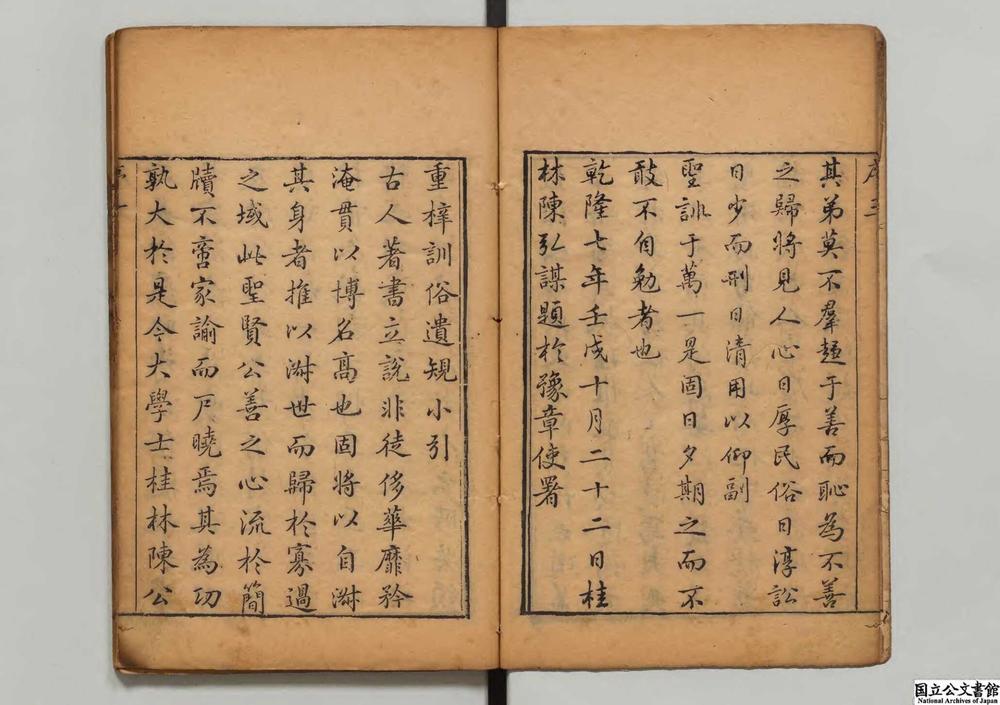 序三
其弟莫不羣趨于善而恥為不善
之歸將見人心日厚民俗日淳訟
日少而刑日清用以仰副
聖訓于萬一是固日夕期之而不
敢不自勉者也
乾隆七年壬戌十月二十二日桂
林陳弘謀題於豫章使署
重梓訓俗遺規小引
古人著書立說非徒侈華靡矜
淹貫以博名高也固將以自淑
其身者推以淑世而歸於寡過
之域此聖賢公善之心流於簡
牘不啻家諭而戶曉焉其為功
孰大於是今大學士桂林陳公
国立公文書館
National Archives of Japan